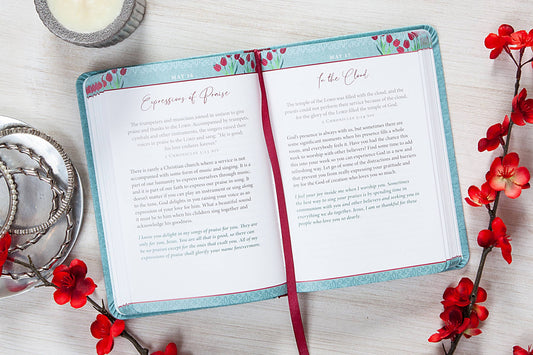 MAY 14
Expressions of Praise
The trumpeters and musicians joined in unison to give
praise and thanks to the LORD. Accompanied by trumpets,
cymbals and other instruments, the singers raised their
voices in praise to the LORD and sang: "He is good;
his love endures forever."
2 CHRONICLES 5:13 NIV
There is rarely a Christian church where a service is not
accompanied with some form of music and singing. It is
part of our humanity to express ourselves through music,
and it is part of our faith to express our praise in song. It
doesn't matter if you can play an instrument or sing along
to the tune, God delights in you raising your voice as an
expression of your love for him. What a beautiful sound
it must be to him when his children sing together and
acknowledge his goodness.
I know you delight in my songs of praise for you. They are
only for you, Jesus. You are all that is good, so there can
be no praises except for the ones that exalt you. All of my
expressions of praise shall glorify your name forevermore.
MAY 15
In the Cloud
The temple of the LORD was filled with the cloud, and the
priests could not perform their service because of the cloud,
for the glory of the LORD filled the temple of God.
2 CHRONICLES 5:14 NIV
God's presence is always with us, but sometimes there are
some significant moments when his presence fills a whole
room, and everybody feels it. Have you had the chance this
week to worship with other believers? Find some time to add
this into your week so you can experience God in a new and
refreshing way. Let go of some of the distractions and barriers
that prevent you from really expressing your gratitude and
joy for the God of creation who loves you so much.
I feel your joy inside me when I worship you. Sometimes
the best way to sing your praises is by spending time to
communicate with you and other believers and seeking you in
everything we do together, Jesus. I am so thankful for these
people who love you so dearly.